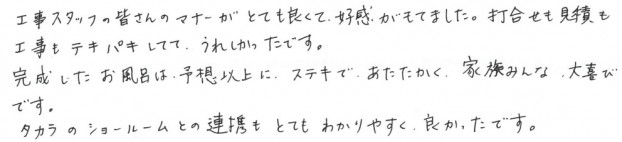 工事スタッフの皆さんのマナーがとても良くて、好感がもてました。打合せも見積も
工事もテキパキしてて、うれしかったです。
完成したお風呂は、予想以上に、ステキで、あたたかく、家族みんな、大喜び
です。
タカラのショールームとの連携もとてもわかりやすく、良かったです。